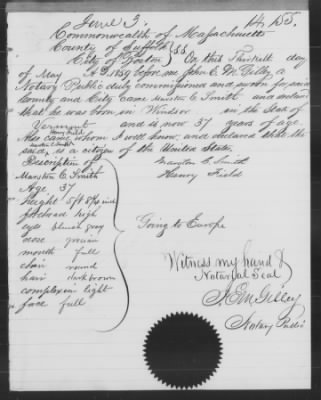 June 3.
Commonwealth of Massachusetts
County of Suffolk } SS.
City of Boston } On this Thirtieth day
of May A.D. 1859 before me John E. M. Gilley, a
Notary Public duly commissioned and sworn for said
County and City came Marston C. Smith and
that he was born in Windsor in the State of
Vermont and is now 37 years of age.
Henry Field
Also came whom I well know, and declared that the
Marston C. Smith
said, is a citizen of the United States,
Description of Marston C. Smith
Marston C. Smith Henry Field
Age 37
height 5 ft 8
forehead high
eyes bluish gray
nose
mouth full
chin round
hair dark brown
complexion light
face full
Going to Europe
Witness my hand &
Notarial Seal
J E M Gilley
Notary Public